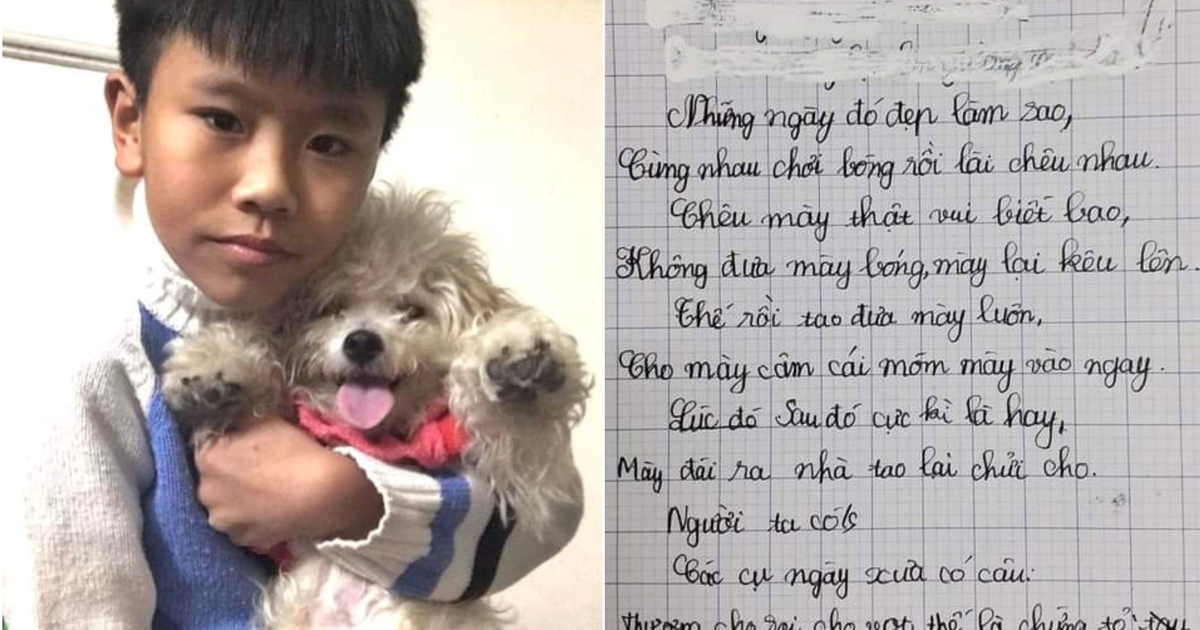 Những ngày đó đẹp làm sao,
Cùng nhau chơi bóng rồi lại chêu nhau.
Chêu mày thật vui biết bao,
Không đưa mày bóng, mày lại kêu lên.
Thế rồi tao đưa mày luôn,
Cho mày câm cái mồm mày vào ngay.
Lúc đó sau đó cực kì là hay,
Mày đái ra nhà tao lại chửi cho.
Người ta có
Các cụ ngày xưa có câu:
cho roi cho vọt thế là chứng tỏ